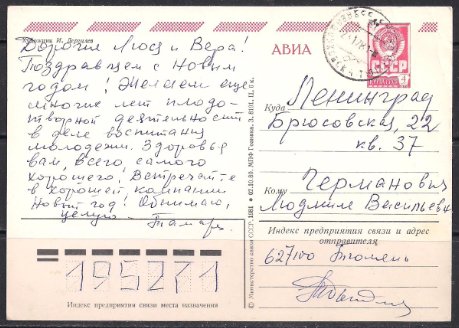 Художник И. Дергилев
Дорогие Люся и Вера!
Поздравляем с Новым
годом! Желаем еще
многие лет плодо-
творной деятельности
в деле воспитания
молодежи. Здоровья
вам, Всего самого
хорошего! Встречайте
в хорошей компании
Новый год! Обнимаю,
целую. Тамара
195271
Индекс предприятия связи места назначения
© Министерство связи СССР. 1981
АВИА
СССР
4
Куда
Ленинград
Брюсовская, 22
кв. 37
Кому
Германович
Людмиле Васильевне
Индекс предприятия связи и адрес
отправителя
627100 Тюмень